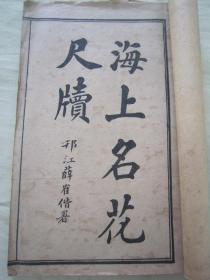 海上名花
尺牘
邗江薛崔偺署